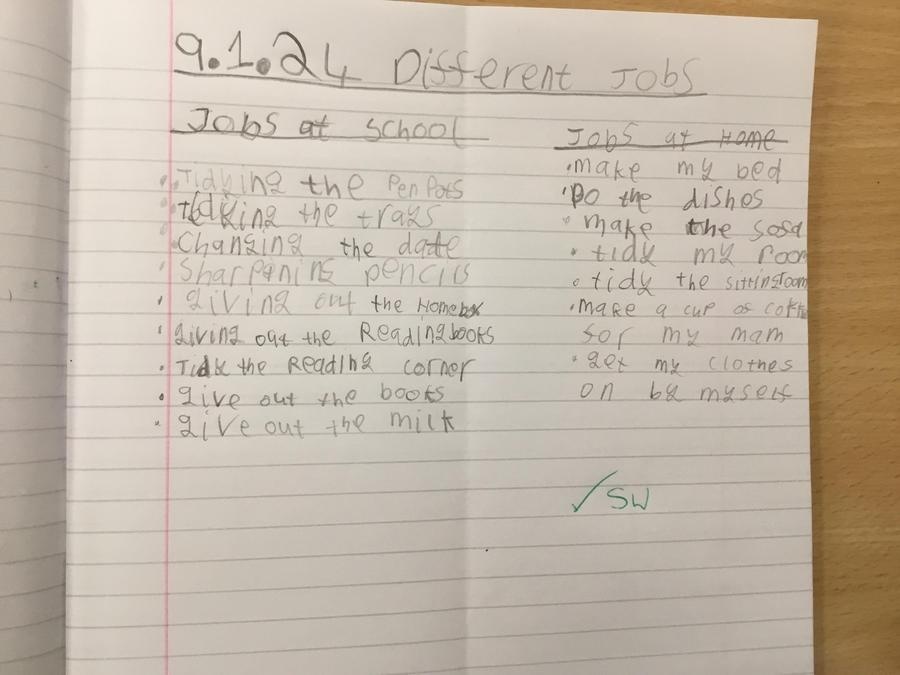 9.1.24 Different Jobs
Jobs at school
• Tidying the Pen Pots
• Tidying the trays
• Changing the date
• Sharpenins pencils
• giving out the Home
• giving out the Reading books
• the Reading corner
• give out the books
• give out the milk
Jobs at Home
• make my bed
• Do the dishes
• make the sofa
• tidy my room
• tidy the sitting room
• make a cup of
for my mam
• get my clothes
on by myself
✓ SW